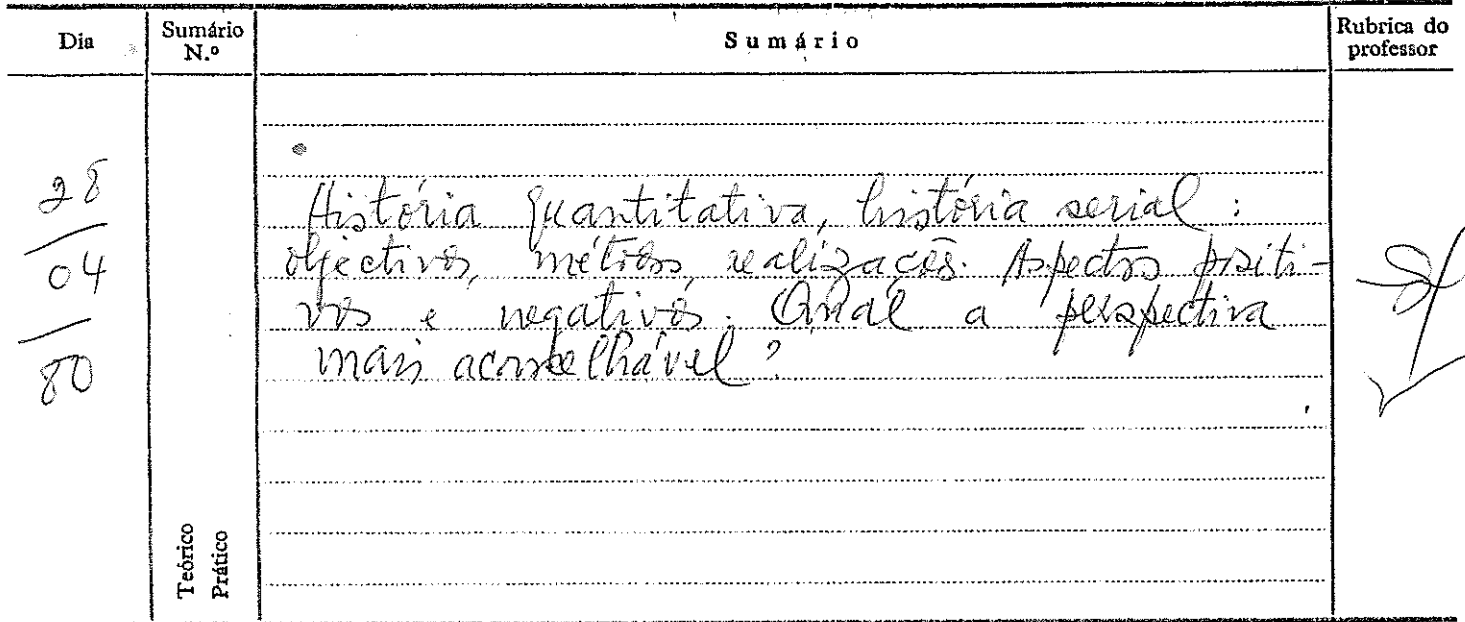 Dia
Sumário N.º
Sumário
Rubrica do professor
28
04
80
História quantitativa, história serial :
objectivos, métodos, realizações. Aspectos positi-
vos e negativos. Qual a perspectiva
mais aconselhável ?
Teórico
Prático